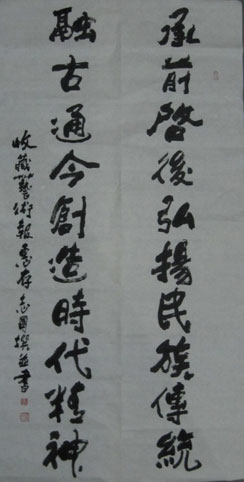 承前啓後弘揚民族傳統
融古通今創造時代精神
收藏藝術報惠存 志国撰並書